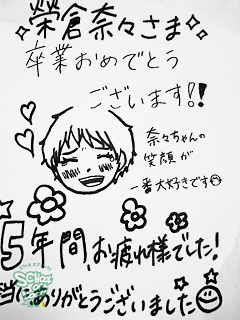 榮倉奈々さま
卒業おめでとう
ございます!!
奈々ちゃんの
笑顔が
一番大好きです
5年間、お疲れ様でした!
当にありがとうございました
SCHOOL OF